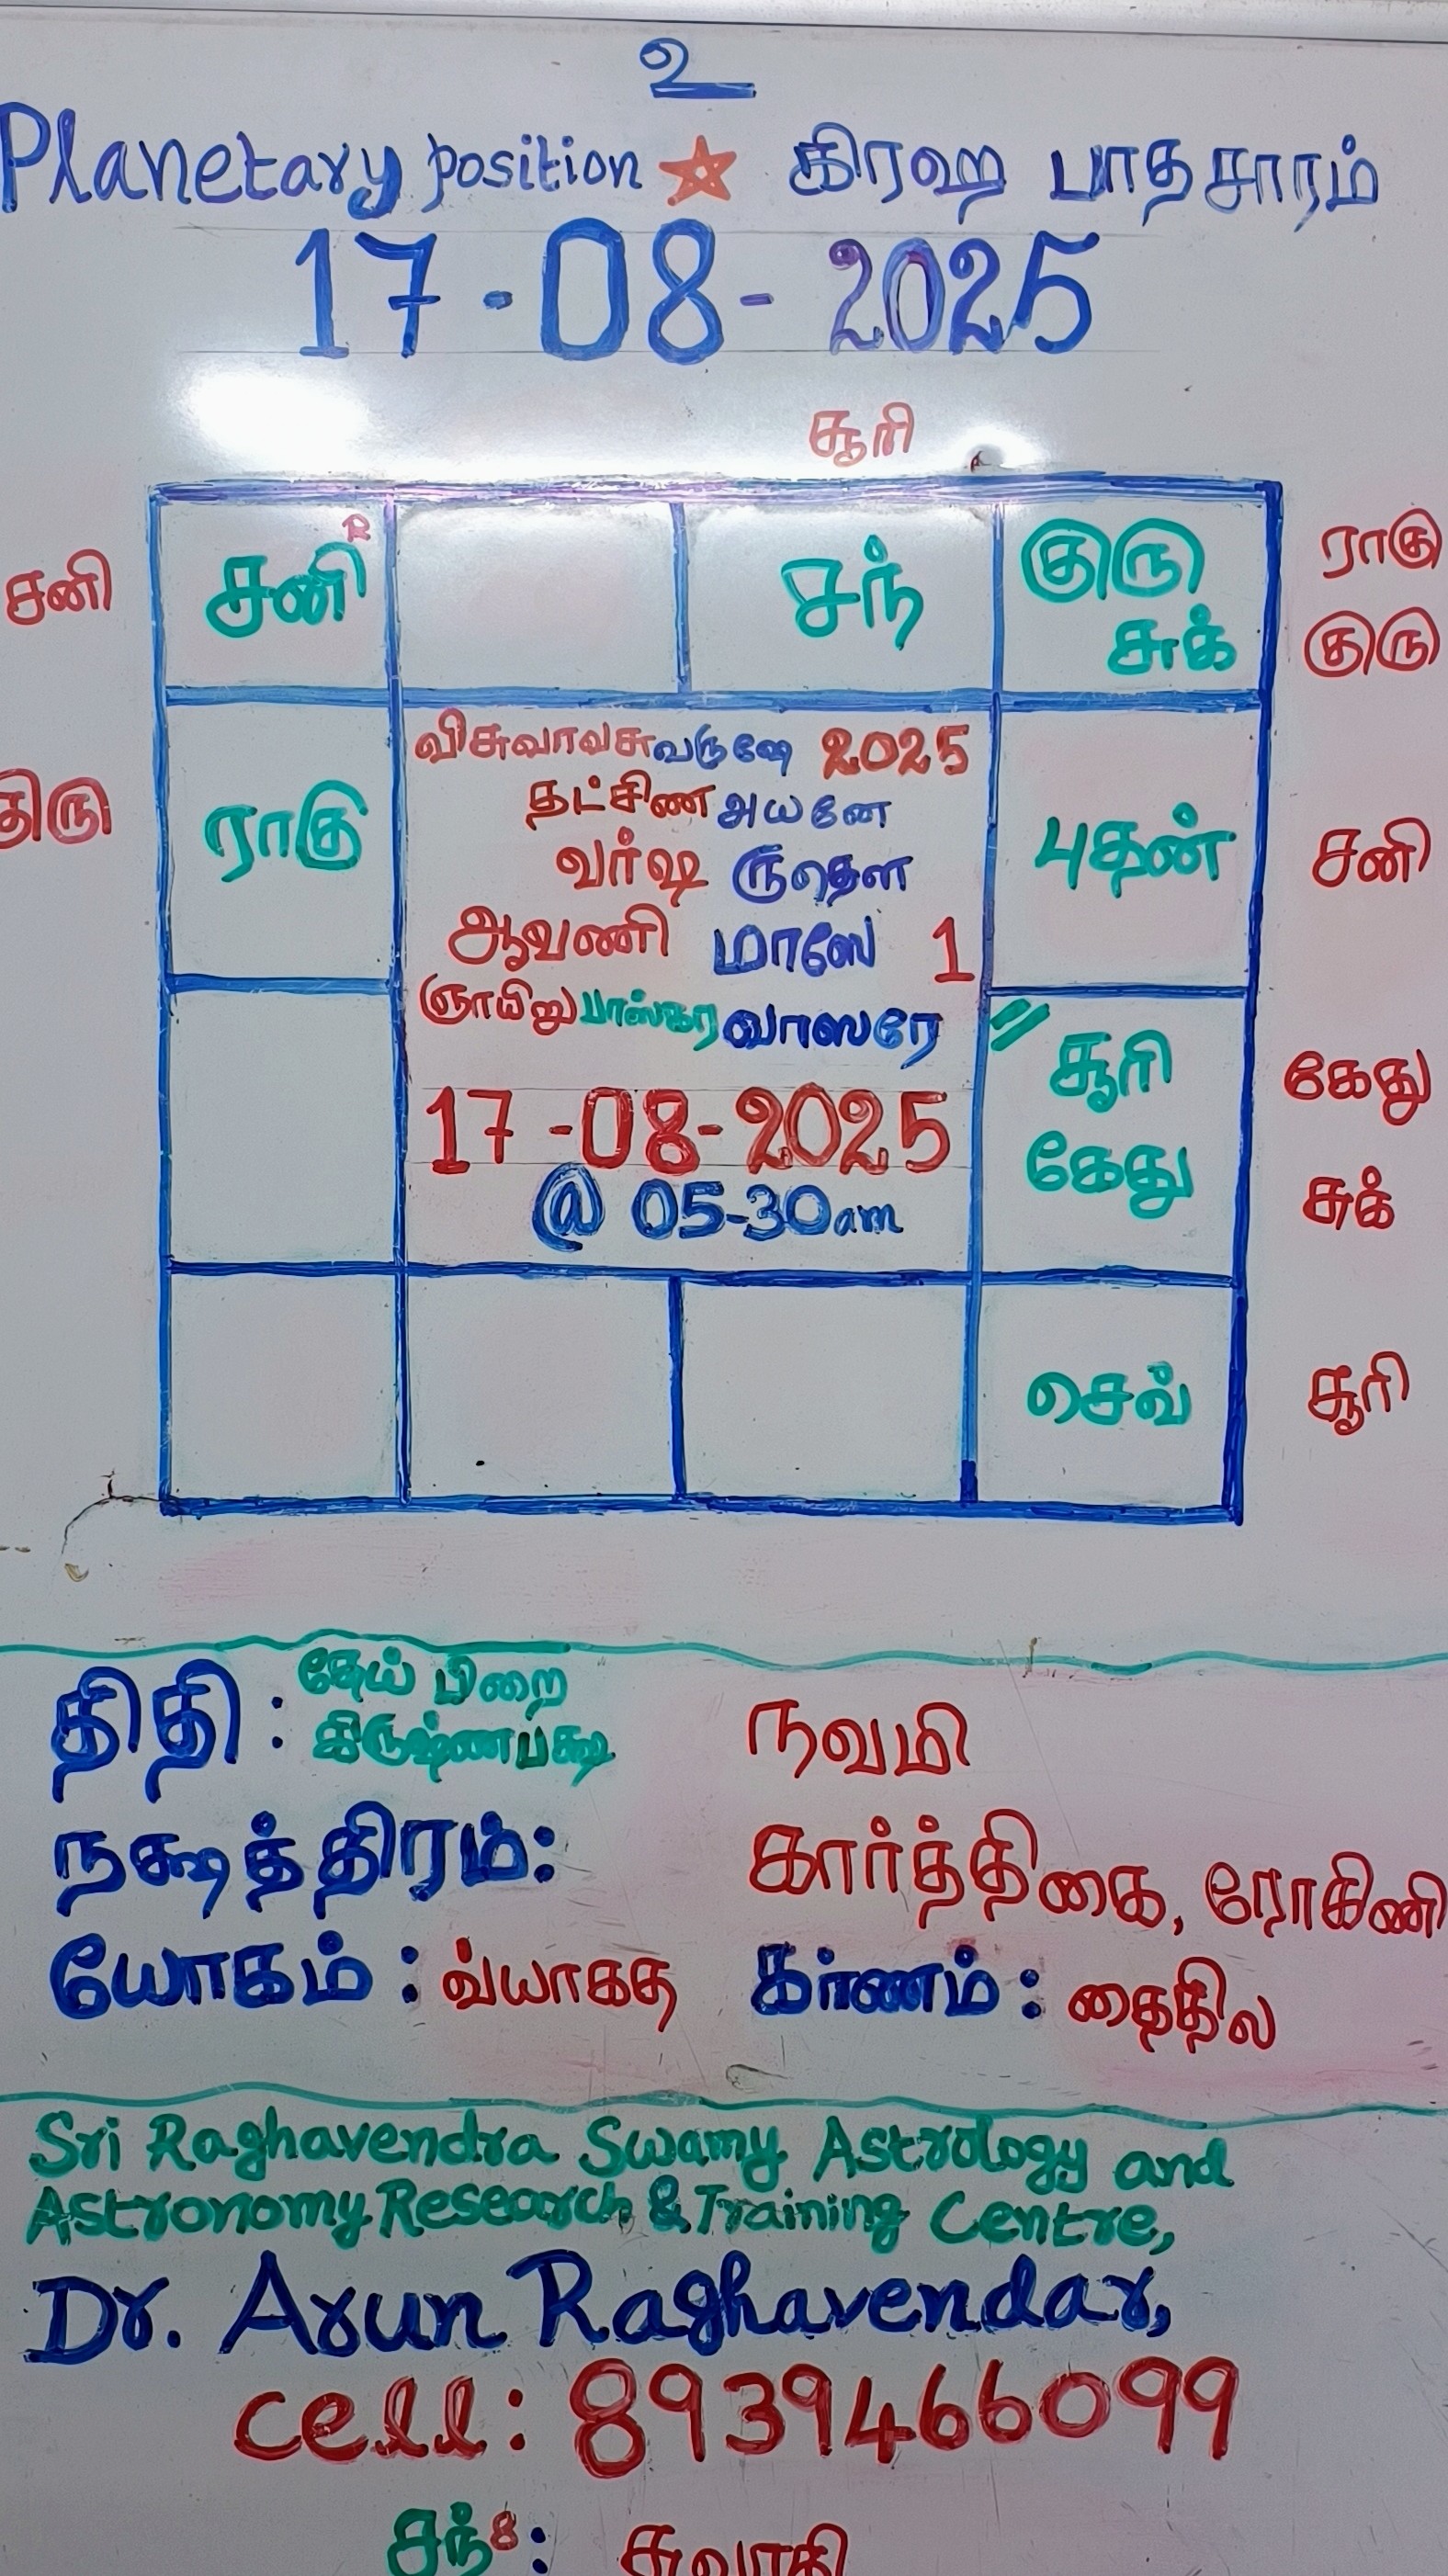 உ
Planetary position ☆ கிரஹ பாதசாரம்
17-08-2025
சூரி
சனி சனி R சந் குரு ராகு
சுக் குரு
விசுவாவசுவருஷே 2025
தட்சிண அயனே
திரு ராகு வர்ஷ ருதௌ புதன் சனி
ஆவணி மாஸே 1
ஞாயிறு பாஸ்கர வாஸரே
சூரி கேது
17-08-2025 கேது
@ 05-30am சுக்
செவ் சூரி
திதி : தேய் பிறை நவமி
கிருஷ்ணபக்ஷ
நக்ஷத்திரம்: கார்த்திகை, ரோகிணி
யோகம் : வ்யாகத கர்ணம் : தைதில
Sri Raghavendra Swamy Astrology and
Astronomy Research & Training Centre,
Dr. Arun Raghavendar,
cell: 8939466099
சந்8: சுவாதி